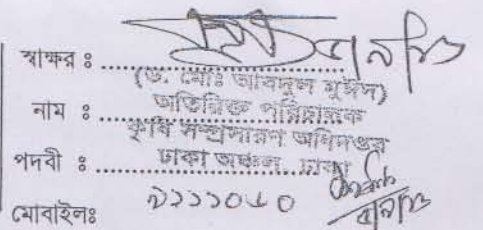 স্বাক্ষর ঃ
(ড. মোঃ আবদুল মুঈদ)
নাম ঃ অতিরিক্ত পরিচালক
কৃষি সম্প্রসারণ অধিদপ্তর
পদবী ঃ ঢাকা অঞ্চল, ঢাকা
মোবাইলঃ ৯১১১০৬০